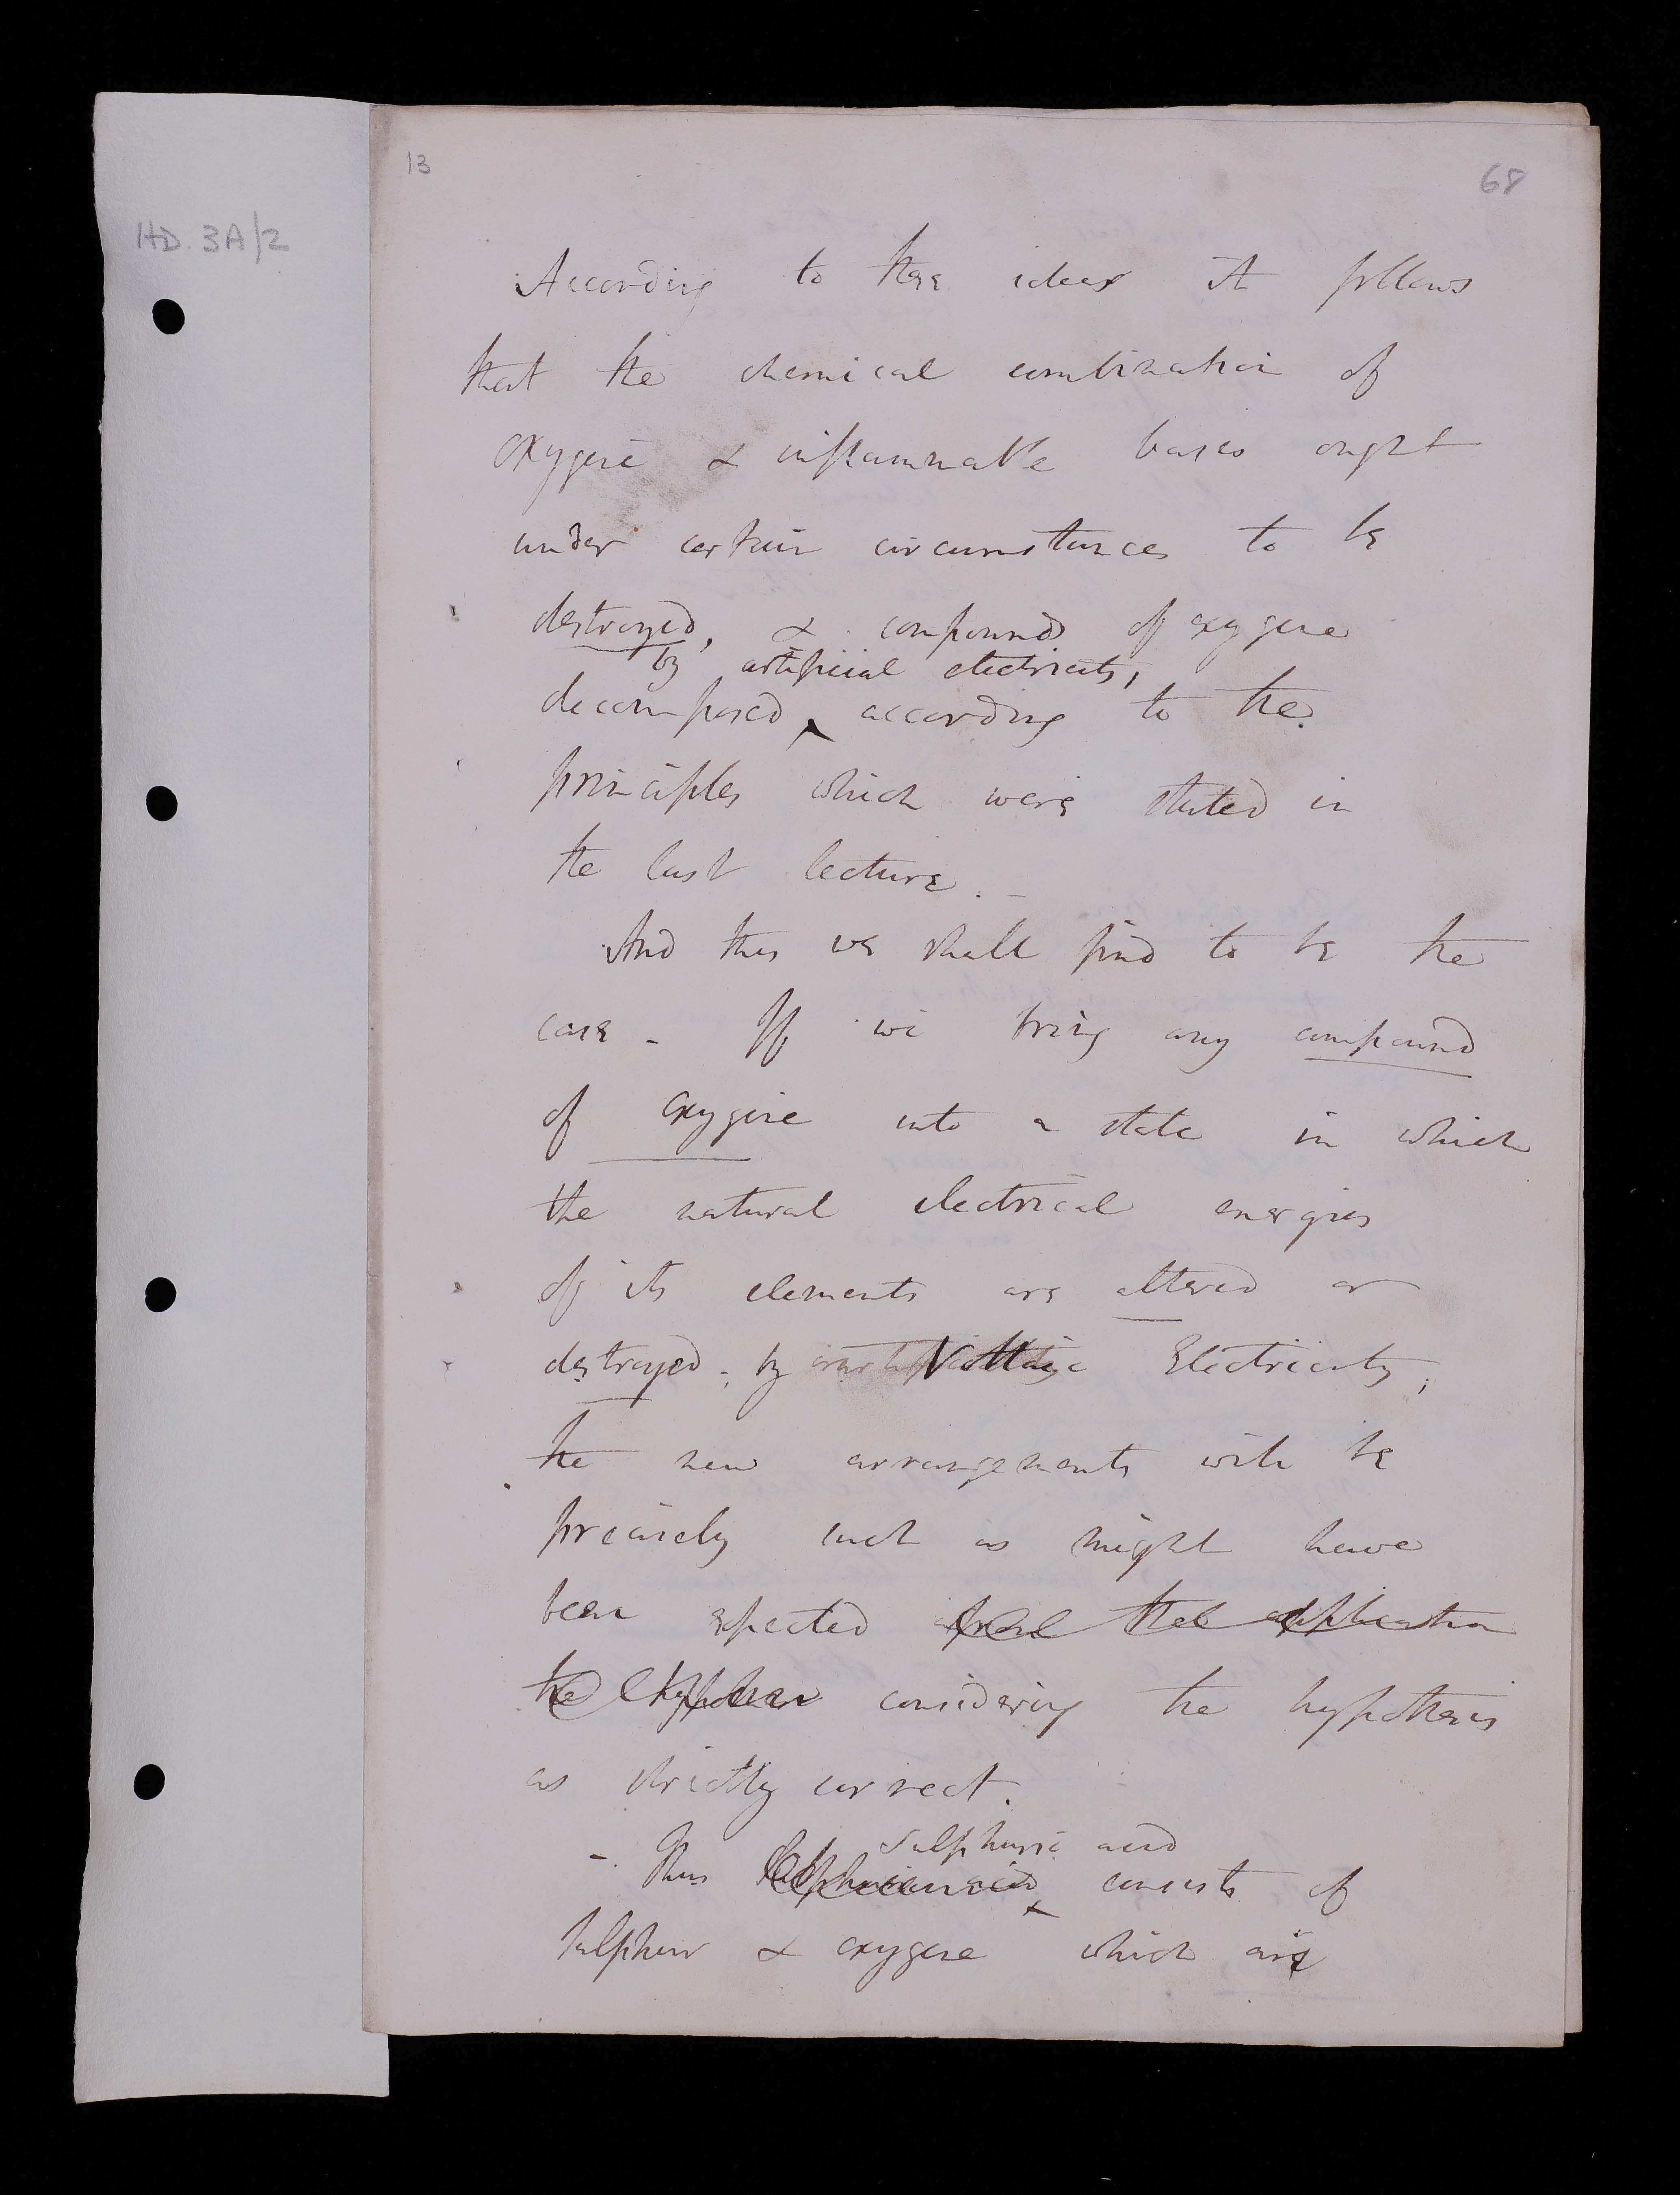 13
68
HD. 3A/2
According to these ideas it follows
that the chemical combination of
oxygene & inflammable bases ought
under certain circumstances to be
destroyed, & compounds of oxygene
by artificial electricity,
decomposed according to the
principles which were stated in
the last lecture. -
And this we shall find to be the
case - If we bring any compound
of oxygene into a state in which
the natural electrical energies
of its elements are altered or
destroyed - by Voltaic Electricity,
the new arrangements will be
precisely such as might have
been expected from the application
the considering the hypothesis
as strictly correct.
Sulphuric acid
- Thus consists of
Sulphur & oxygene which are